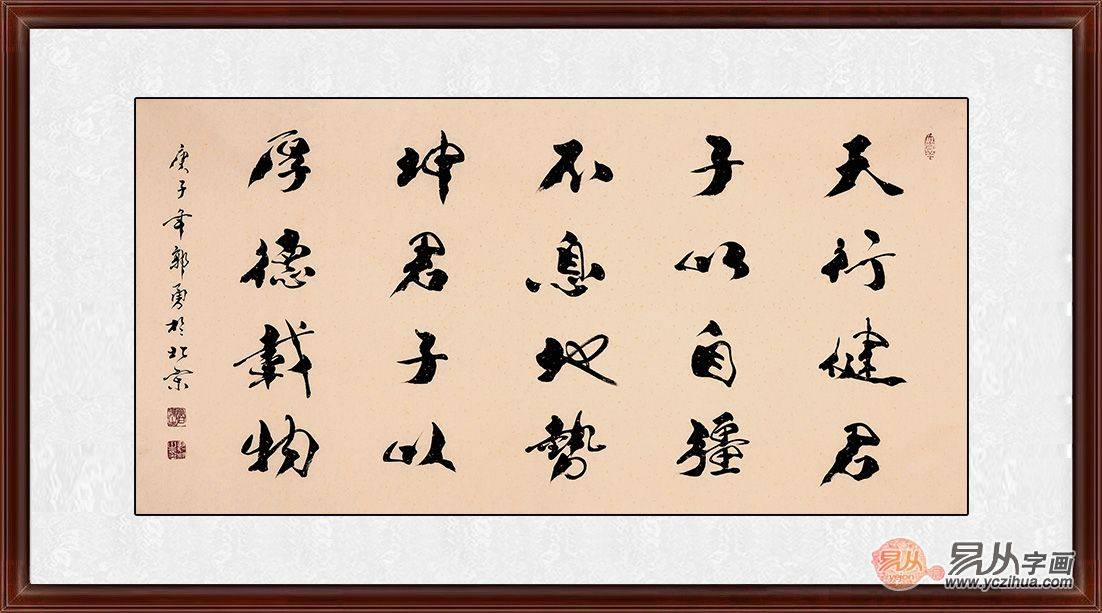 天行健君
子以自彊
不息地势
坤君子以
厚德载物
庚子年郭勇于北京
易从
yejon
易从字画
www.yczihua.com